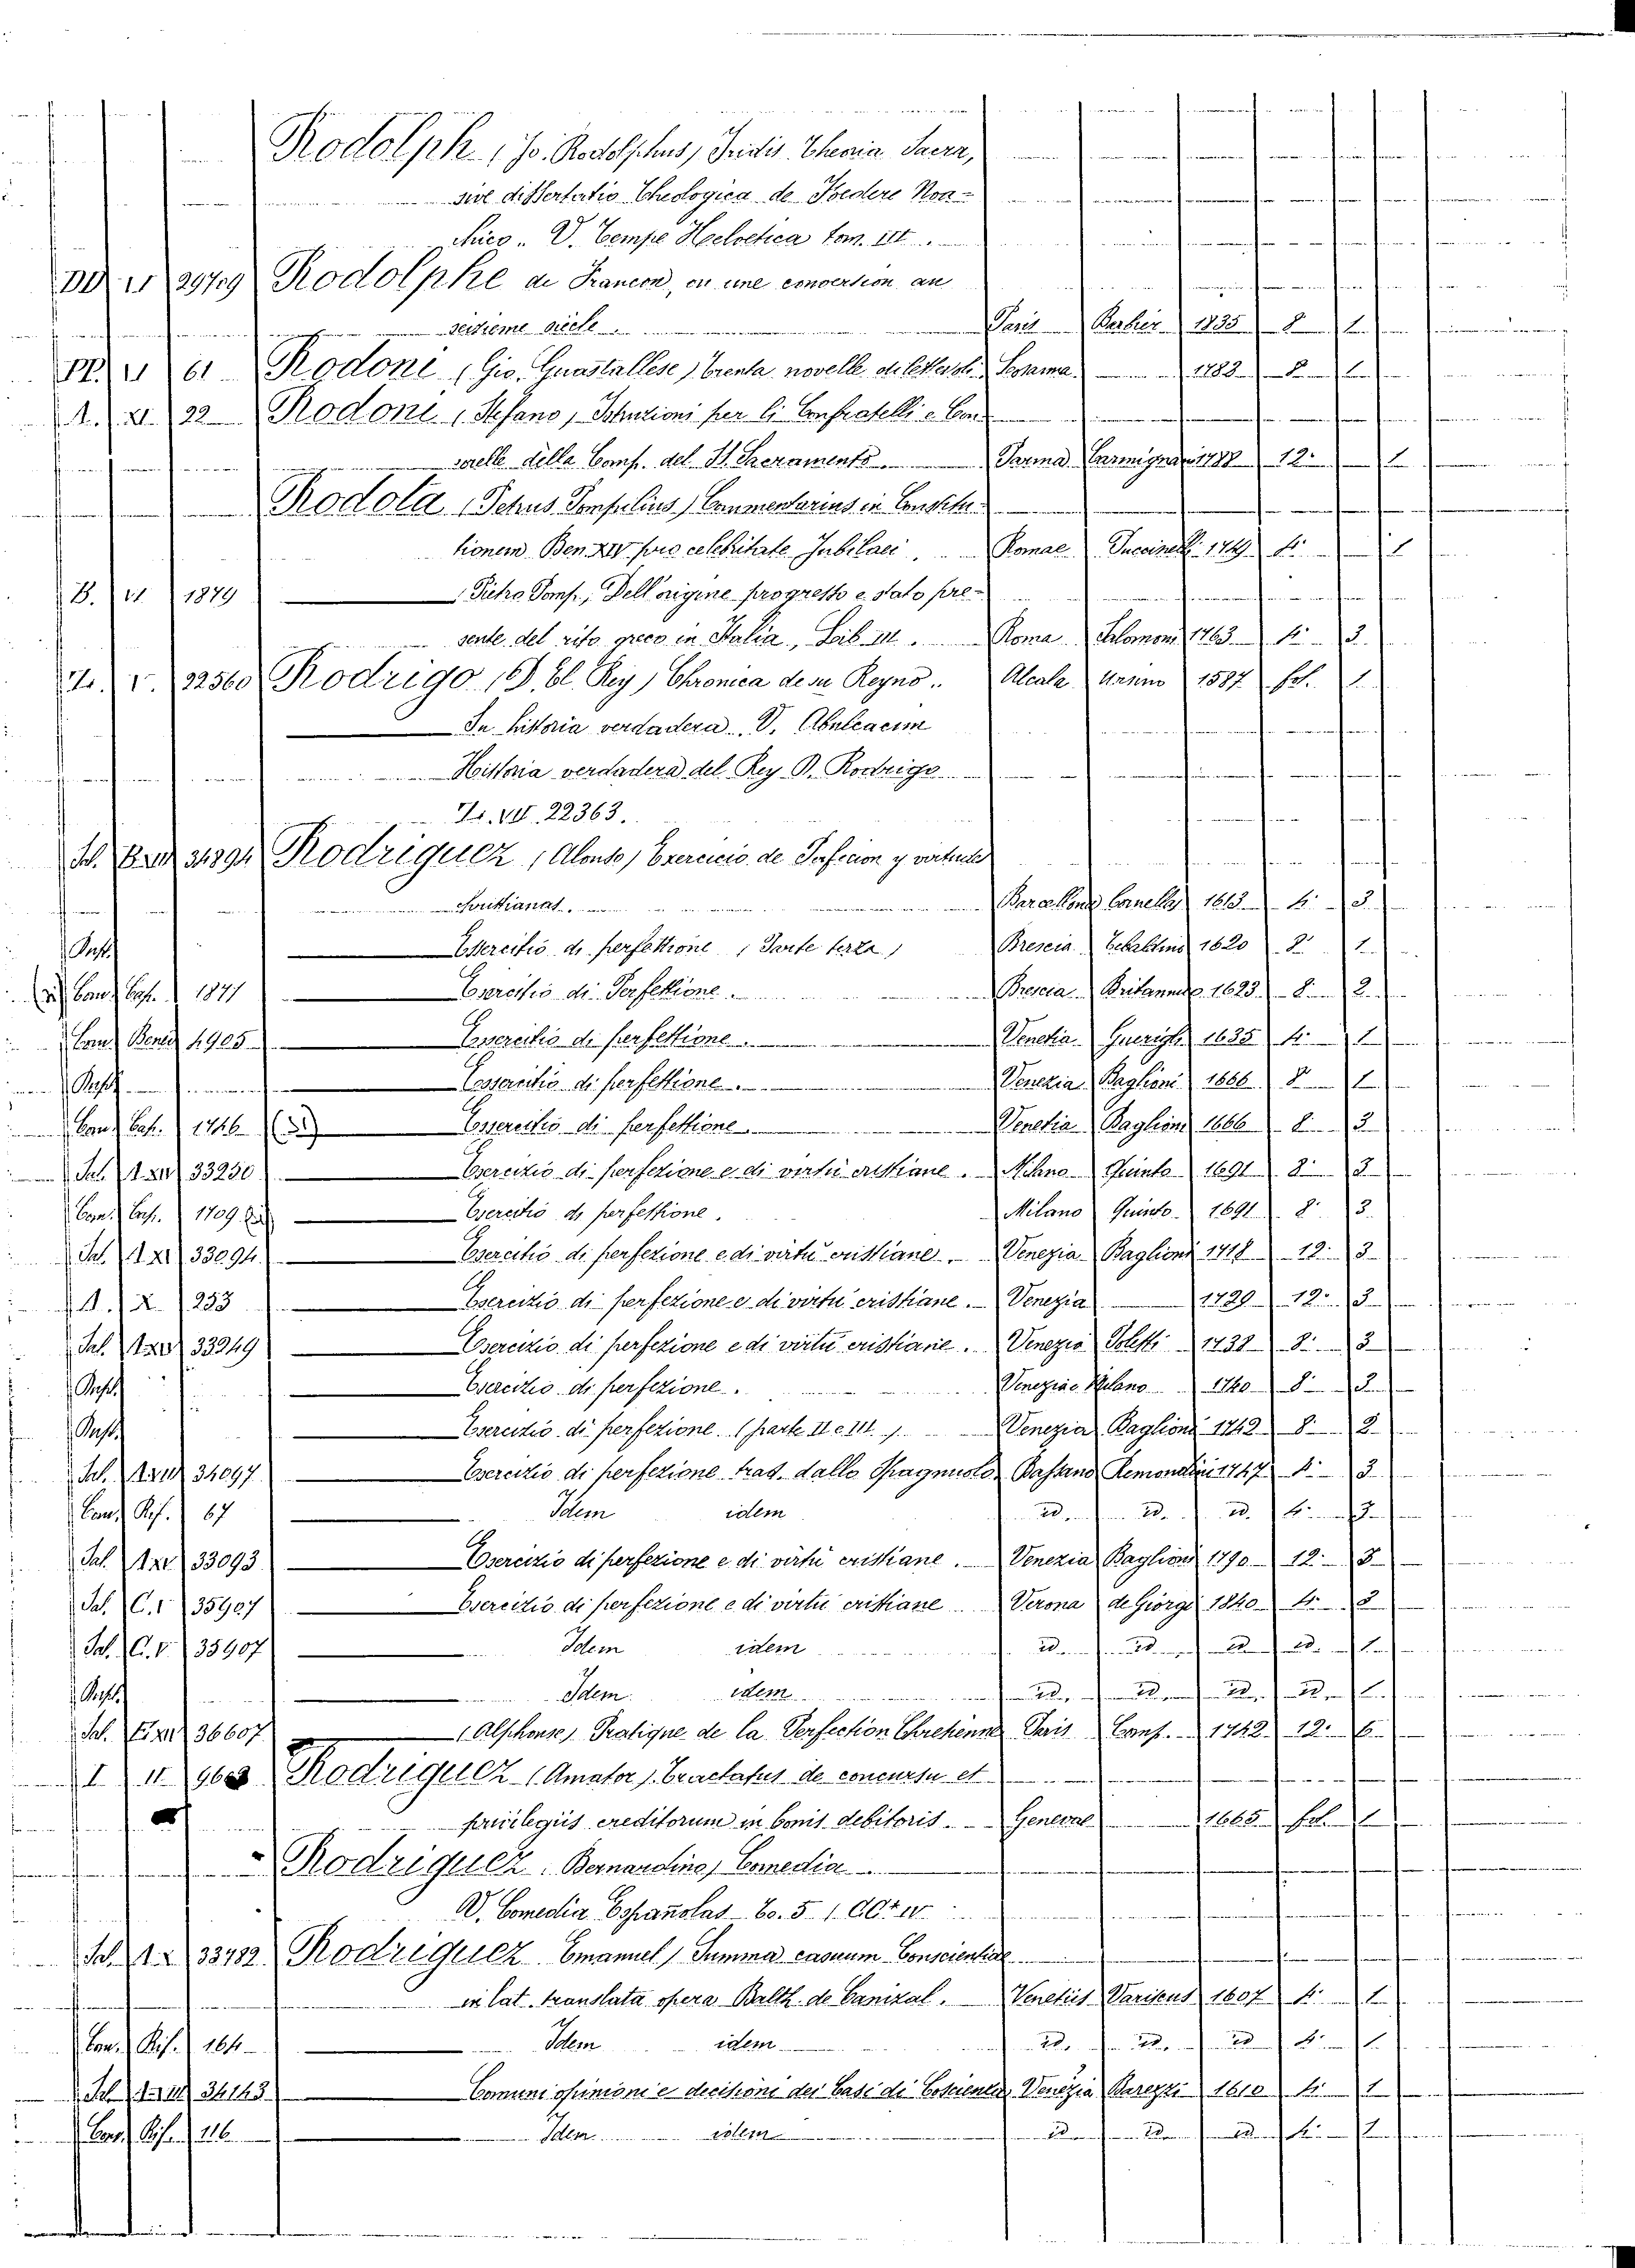 Rodolph (Jo. Rodolphus) Iridis Theoria Sacra,
sive dissertatio Theologica de Foedere Noa-
chico. V. Tempe Helvetica tom. III.
DD 29709 Rodolphe de Francon, ou une convertion au
seizieme siècle. Paris Barbier 1835 8 1
PP. 61 Rodoni (Gio. Guastallese) Trenta novelle Parma 1783 8 1
A. XI. 22 Rodoni (Stefano) Istruzioni per li Confratelli e Con-
sorelle della Comp. del SS. Sacramento. Parma Carmignani 1788 12. 1
Rodota (Petrus Pompilius) Commentarius in Constitu-
tionem Ben. XIV pro celebritate Jubilaei. Romae 1749 4. 1
B. VI. 1879 Pietro Pomp., Dell'origine progresso e stato pre-
sente del rito greco in Italia, Lib. III. Roma Salomoni 1763 4. 3.
V. 22560 Rodrigo (D. el Rey) Chronica de su Reyno. Alcala 1587 fol. 1.
Su historia verdadera. V. Abulcacim
Historia verdadera del Rey D. Rodrigo
VII. 22363.
Sal. 34894 Rodriguez (Alonso) Exercicio de Perfecion y virtudes
Barcellona 1613 4. 3.
Essercitio di perfettione (Parte terza) Brescia 1620 8. 1.
Com. Cap. 1871 Esercitio di Perfettione. Brescia Britannico 1623. 8. 2.
Com. Bened 4905 Essercitio di perfettione. Venetia Guerigli 1635 4. 1
Essercitio di perfettione. Venezia Baglioni 1666 8 1
Com. Cap. 1746 Essercitio di perfettione. Venetia Baglioni 1666 8. 3
Sal. 33230 Esercizio di perfezione e di virtù cristiane. Milano Quinto 1691 8. 3
Com. Cap. 1709 Esercitio di perfettione. Milano Quinto. 1691 8. 3.
Sal. 33094 Esercitio di perfezione e di virtù cristiane. Venezia Baglioni 1718 12. 3
A. X. 253 Esercizio di perfezione e di virtù cristiane. Venezia 1729 12. 3
Sal. 33949 Esercizio di perfezione e di virtù cristiane. Venezia Poletti 1738 8. 3
Esercitio di perfezione. Venezia e Milano 1740 8.
Esercizio di perfezione (parte II e III.) Venezia Baglioni 1742 8. 2
Sal. 34097 Esercizio di perfezione trad. dallo Spagnuolo. Bassano Remondini 1747 4. 3
Com. Rif. 67 Idem idem id. id. id. 4. 3
Sal. 33093 Esercizio di perfezione e di virtù cristiane. Venezia Baglioni 1790 12. 3
Sal. C. 35907 Esercizio di perfezione e di virtù cristiane Verona de Giorgi 1840 4. 3
Sal. C. V. 35907 Idem idem id id id id. 1
Idem idem id. id. id. id. 1
Sal. 36607 (Alphonse) Pratique de la Perfection Chretienne Paris Comp. 1742 12. 6
I II Rodriguez (Amator) Tractatus de concursu et
privilegiis creditorum in bonis debitoris. Genevae 1665 fol. 1
Rodriguez, Bernardino) Comedia
V. Comedia Españolas To. 5
Sal. 33782 Rodriguez Emanuel) Summa casuum Conscientiae
in lat. translata opera Balth. de Canizal. Venetiis Variscus 1607 4. 1
Con. Rif. 164 Idem idem id. id. id 4. 1
Sal. 34143 Comuni opinioni e decisioni dei Casi di Coscienza Venezia Barezzi 1610 4. 1
Con. Rif. 116 Idem idem id id id 4. 1